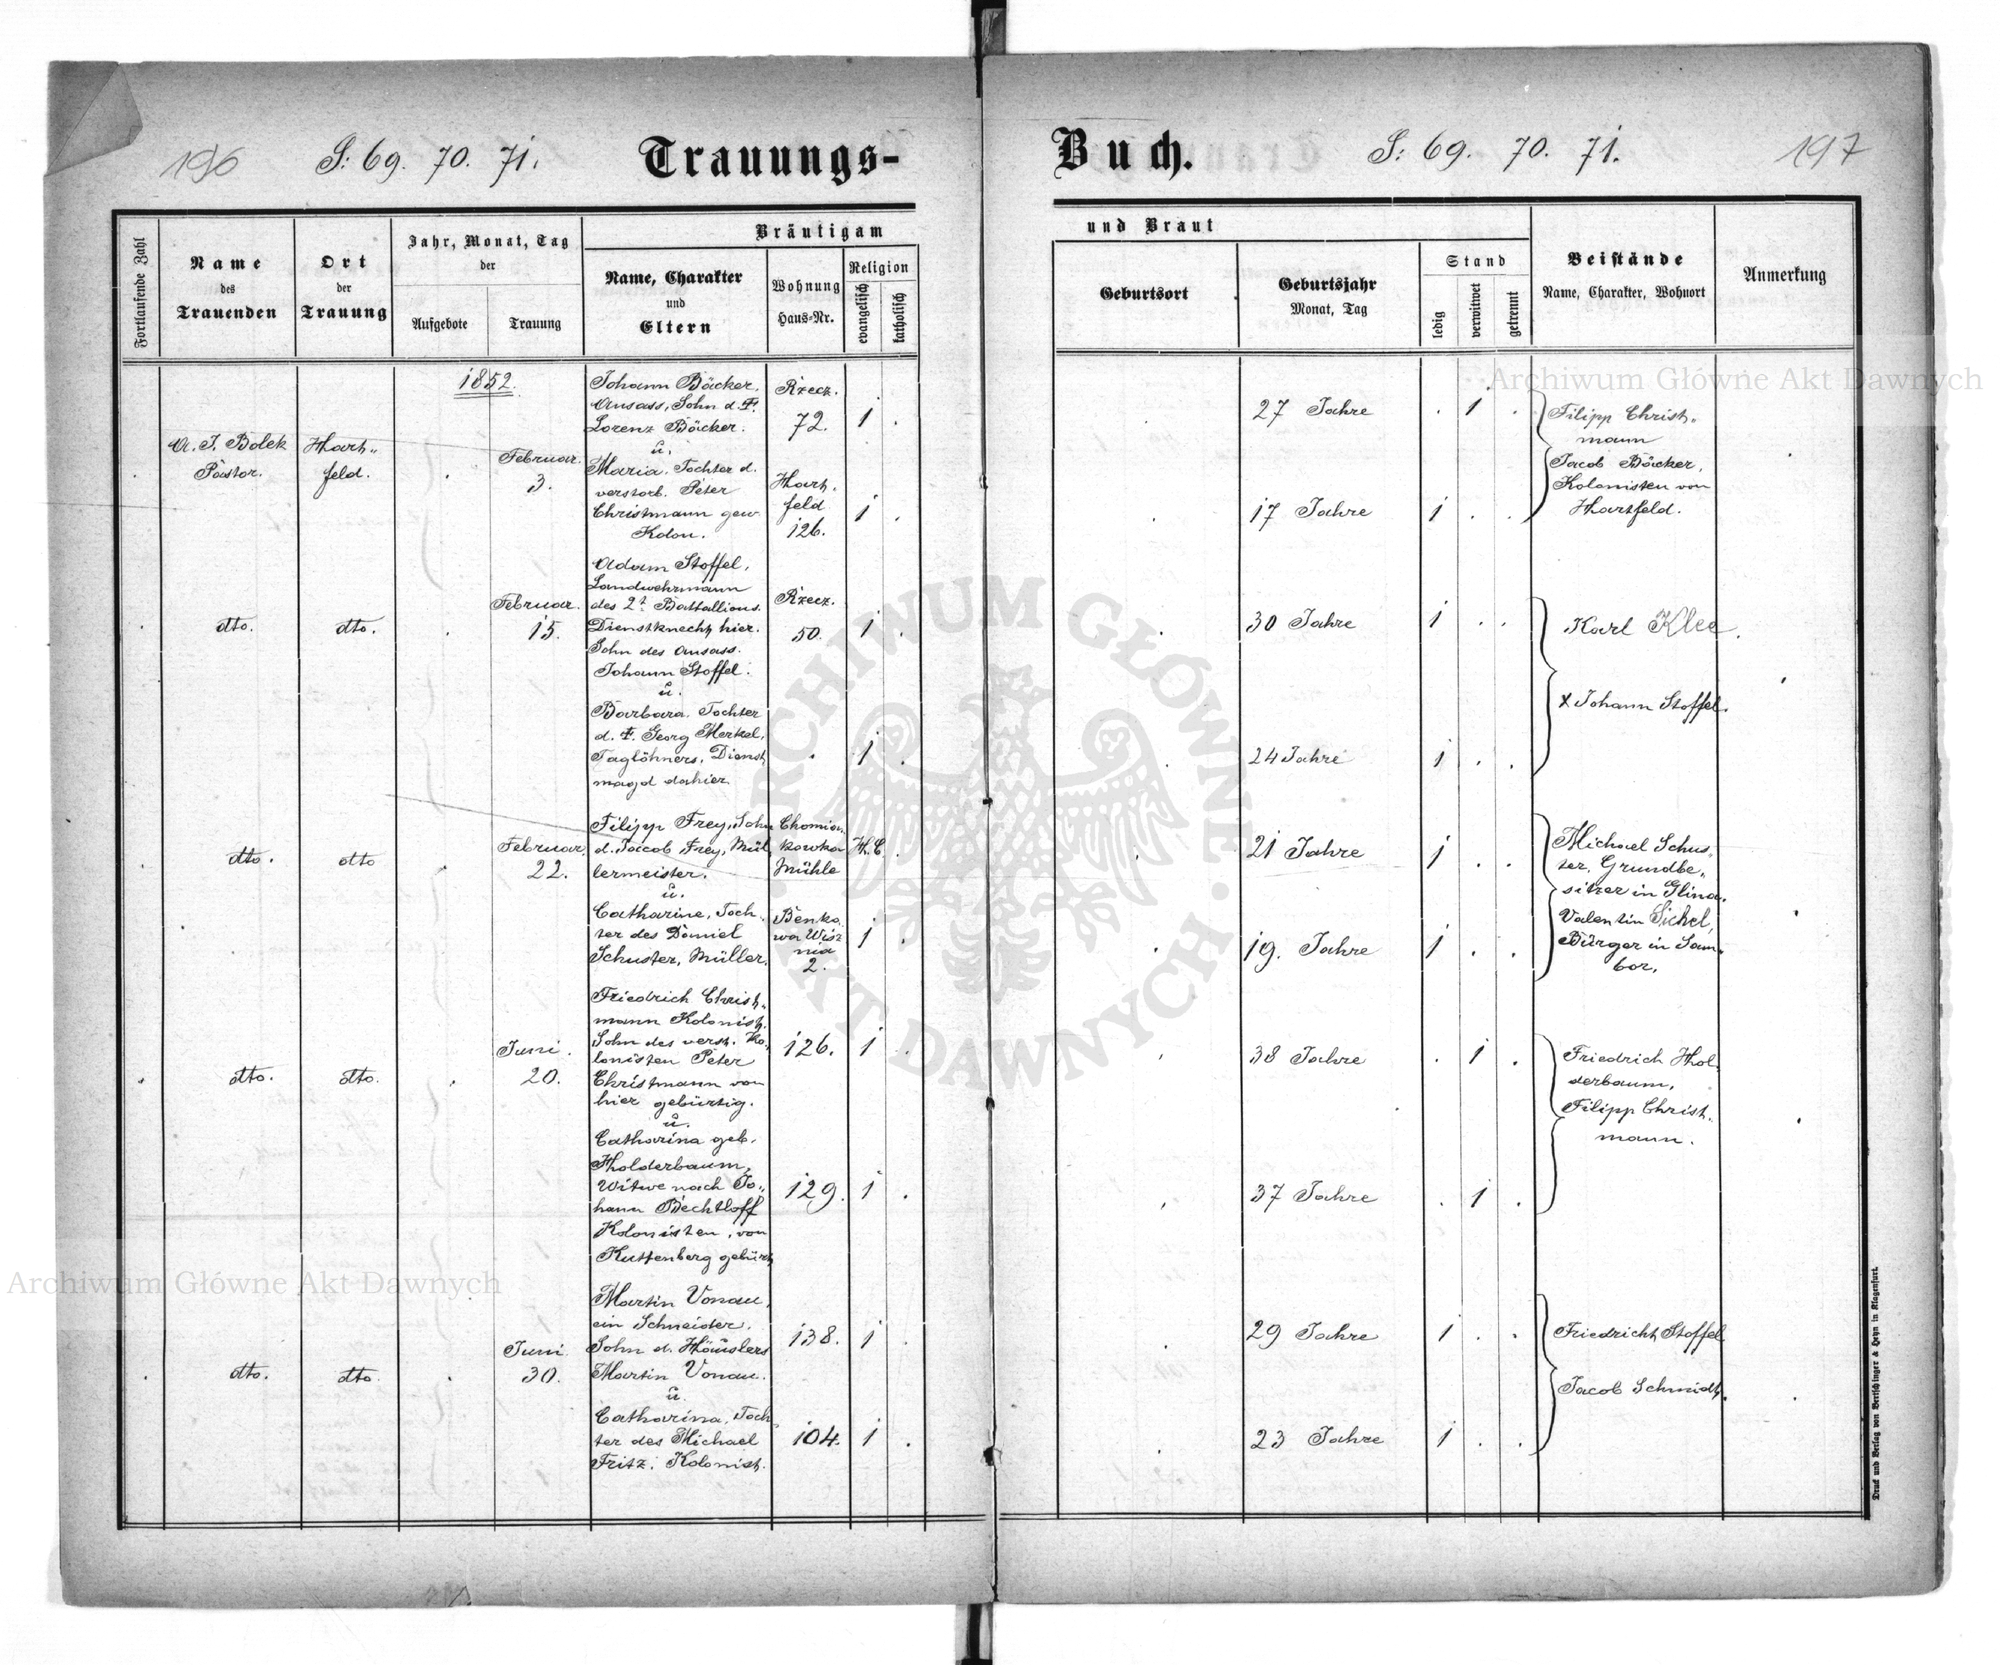 196 S: 69. 70. 71. Trauungs-
Buch. S: 69. 70. 71. 197
Fortlaufende Zahl
Name
des
Trauenden
Ort
der
Trauung
Jahr, Monat, Tag
der
Aufgebote
Trauung
Bräutigam
Name, Charakter
und
Eltern
Wohnung
Haus-Nr.
Religion
evangelisch
katholisch
und Braut
Geburtsort
Geburtsjahr
Monat, Tag
Stand
ledig
verwitwet
getrennt
Beistände
Name, Charakter, Wohnort
Anmerkung
1852.
A. J. Bolek
Pastor.
Hart„
feld.
Februar.
3.
Johann Bäcker,
Ansass, Sohn d. †.
Lorenz Bäcker.
u.
Maria, Tochter d.
verstorb. Peter
Christmann gew.
Kolon.
Rzecz.
72.
1
Hart.
feld
126.
1
27 Jahre
1
17 Jahre
1
Filipp Christ„
mann
Jacob Bäcker,
Kolonisten von
Hartfeld.
dto.
dto.
Februar.
15.
Adam Stoffel,
Landwehrmann
des 2t Battallions.
Dienstknecht hier.
Sohn des Ansass.
Johann Stoffel.
u.
Barbara, Tochter
d. †. Georg Merkel,
Taglöhners, Dienst
magd dahier.
Rzecz.
50.
1
1
30 Jahre
1
24 Jahre
1
Karl Klee.
x Johann Stoffel.
dto.
dto
Februar.
22.
Filipp Frey, Sohn
d. Jacob Frey, Mül
lermeister.
u.
Catharine, Toch„
ter des Daniel
Schuster, Müller.
Chomian.
kowka
Mühle
H.C.
Benko.
wa Wisz
nia
2.
1
21 Jahre
1
19. Jahre
1
Michael Schus„
ter, Grundbe„
sitzer in Glina.
Valentin Sichel,
Bürger in Sam„
bor,
dto.
dto.
Juni.
20.
Friedrich Christ„
mann Kolonist.
Sohn des verst. Ko„
lonisten Peter
Christmann von
hier gebürtig.
u.
Catharina geb.
Holderbaum,
Witwe nach Jo„
hann Bechtloff
Kolonisten, von
Kuttenberg gebürt.
126.
1
129.
1
38 Jahre
1
37 Jahre
1
Friedrich Hol„
derbaum,
Filipp Christ.
mann.
dto.
dto.
Juni.
30.
Martin Vonau,
ein Schneider,
Sohn d. Häuslers
Martin Vonau.
u.
Catharina, Toch
ter des Michael
Fritz. Kolonist.
138.
1
104.
1
29 Jahre
1
23 Jahre
1
Friedricht Stoffel
Jacob Schmidt.
Druck und Verlag von Bertschinger & Heyn in Klagenfurt.
Archiwum Główne Akt Dawnych
Archiwum Główne Akt Dawnych
ARCHIWUM GŁÓWNE AKT DAWNYCH